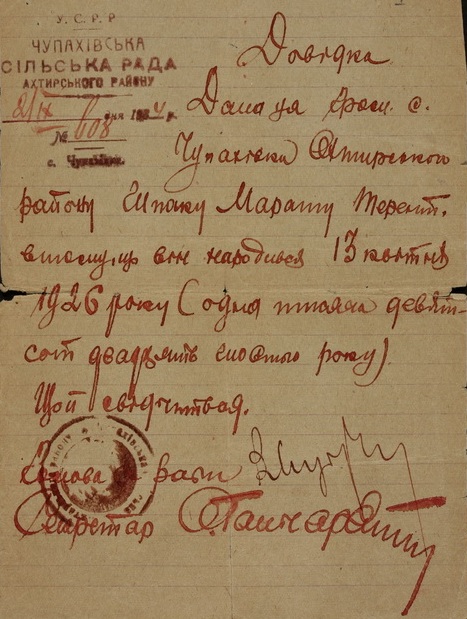 У.С.Р.Р
ЧУПАХІВСЬКА
СІЛЬСЬКА РАДА
АХТИРСЬКОГО РАЙОНУ
21/IX дня 1934 р.
№ 608
с. Чупахівка
Довідка
Дана ця гром. с.
Чупахівки Охтирського
району Шпаку Марату Терент.
в тому, що він народився 13 квітня
1926 року (одна тисяча девят-
сот двадцять шостого року)
Що й свідчиться.
Голова ради
Секретар